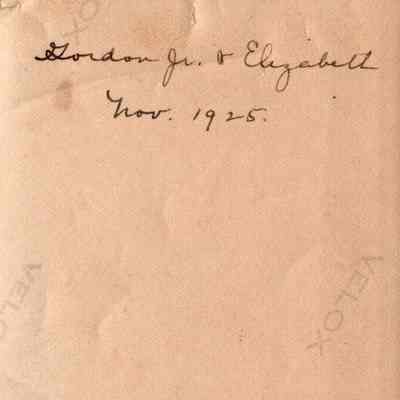 Gordon Jr. & Elizabeth
Nov. 1925.
VELOX
VELOX
VELOX